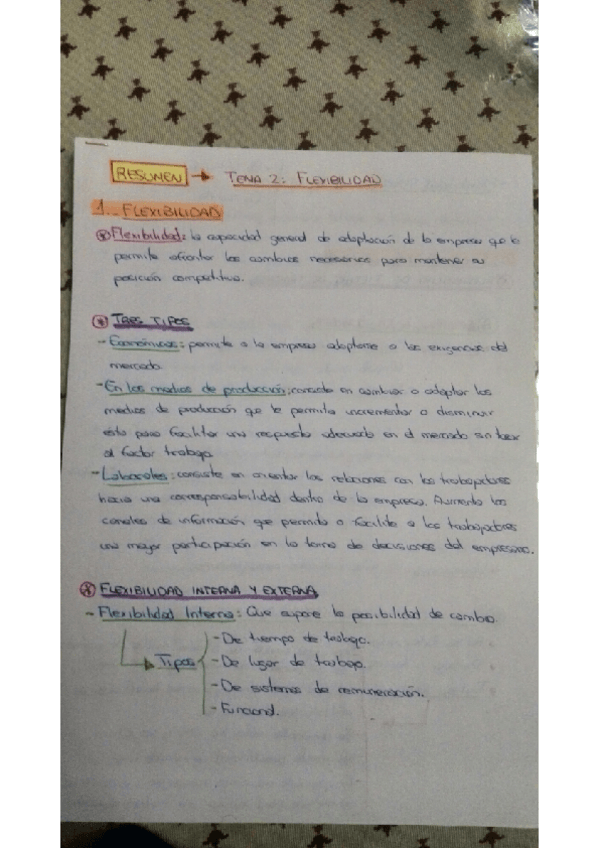 RESUMEN → TEMA 2: FLEXIBILIDAD
1. FLEXIBILIDAD
Flexibilidad: la capacidad general de adaptación de la empresa que le
permite afrontar los cambios necesarios para mantener su
posición competitiva.
TRES TIPOS
- Económicos: permite a la empresa adaptarse a las exigencias del
mercado.
- En los medios de producción: consiste en cambiar o adaptar los
medios de producción que le permita incrementar o disminuir
esto para facilitar una respuesta adecuada en el mercado sin tocar
al factor trabajo.
- Laborales: consiste en orientar las relaciones con los trabajadores
hacia una corresponsabilidad dentro de la empresa. Aumenta los
canales de información que permita o facilite a los trabajadores
una mayor participación en la toma de decisiones del empresario.
FLEXIBILIDAD INTERNA Y EXTERNA
- Flexibilidad Interna: Que supone la posibilidad de cambio.
Tipos
- De tiempo de trabajo.
- De lugar de trabajo.
- De sistemas de remuneración.
- Funcional.